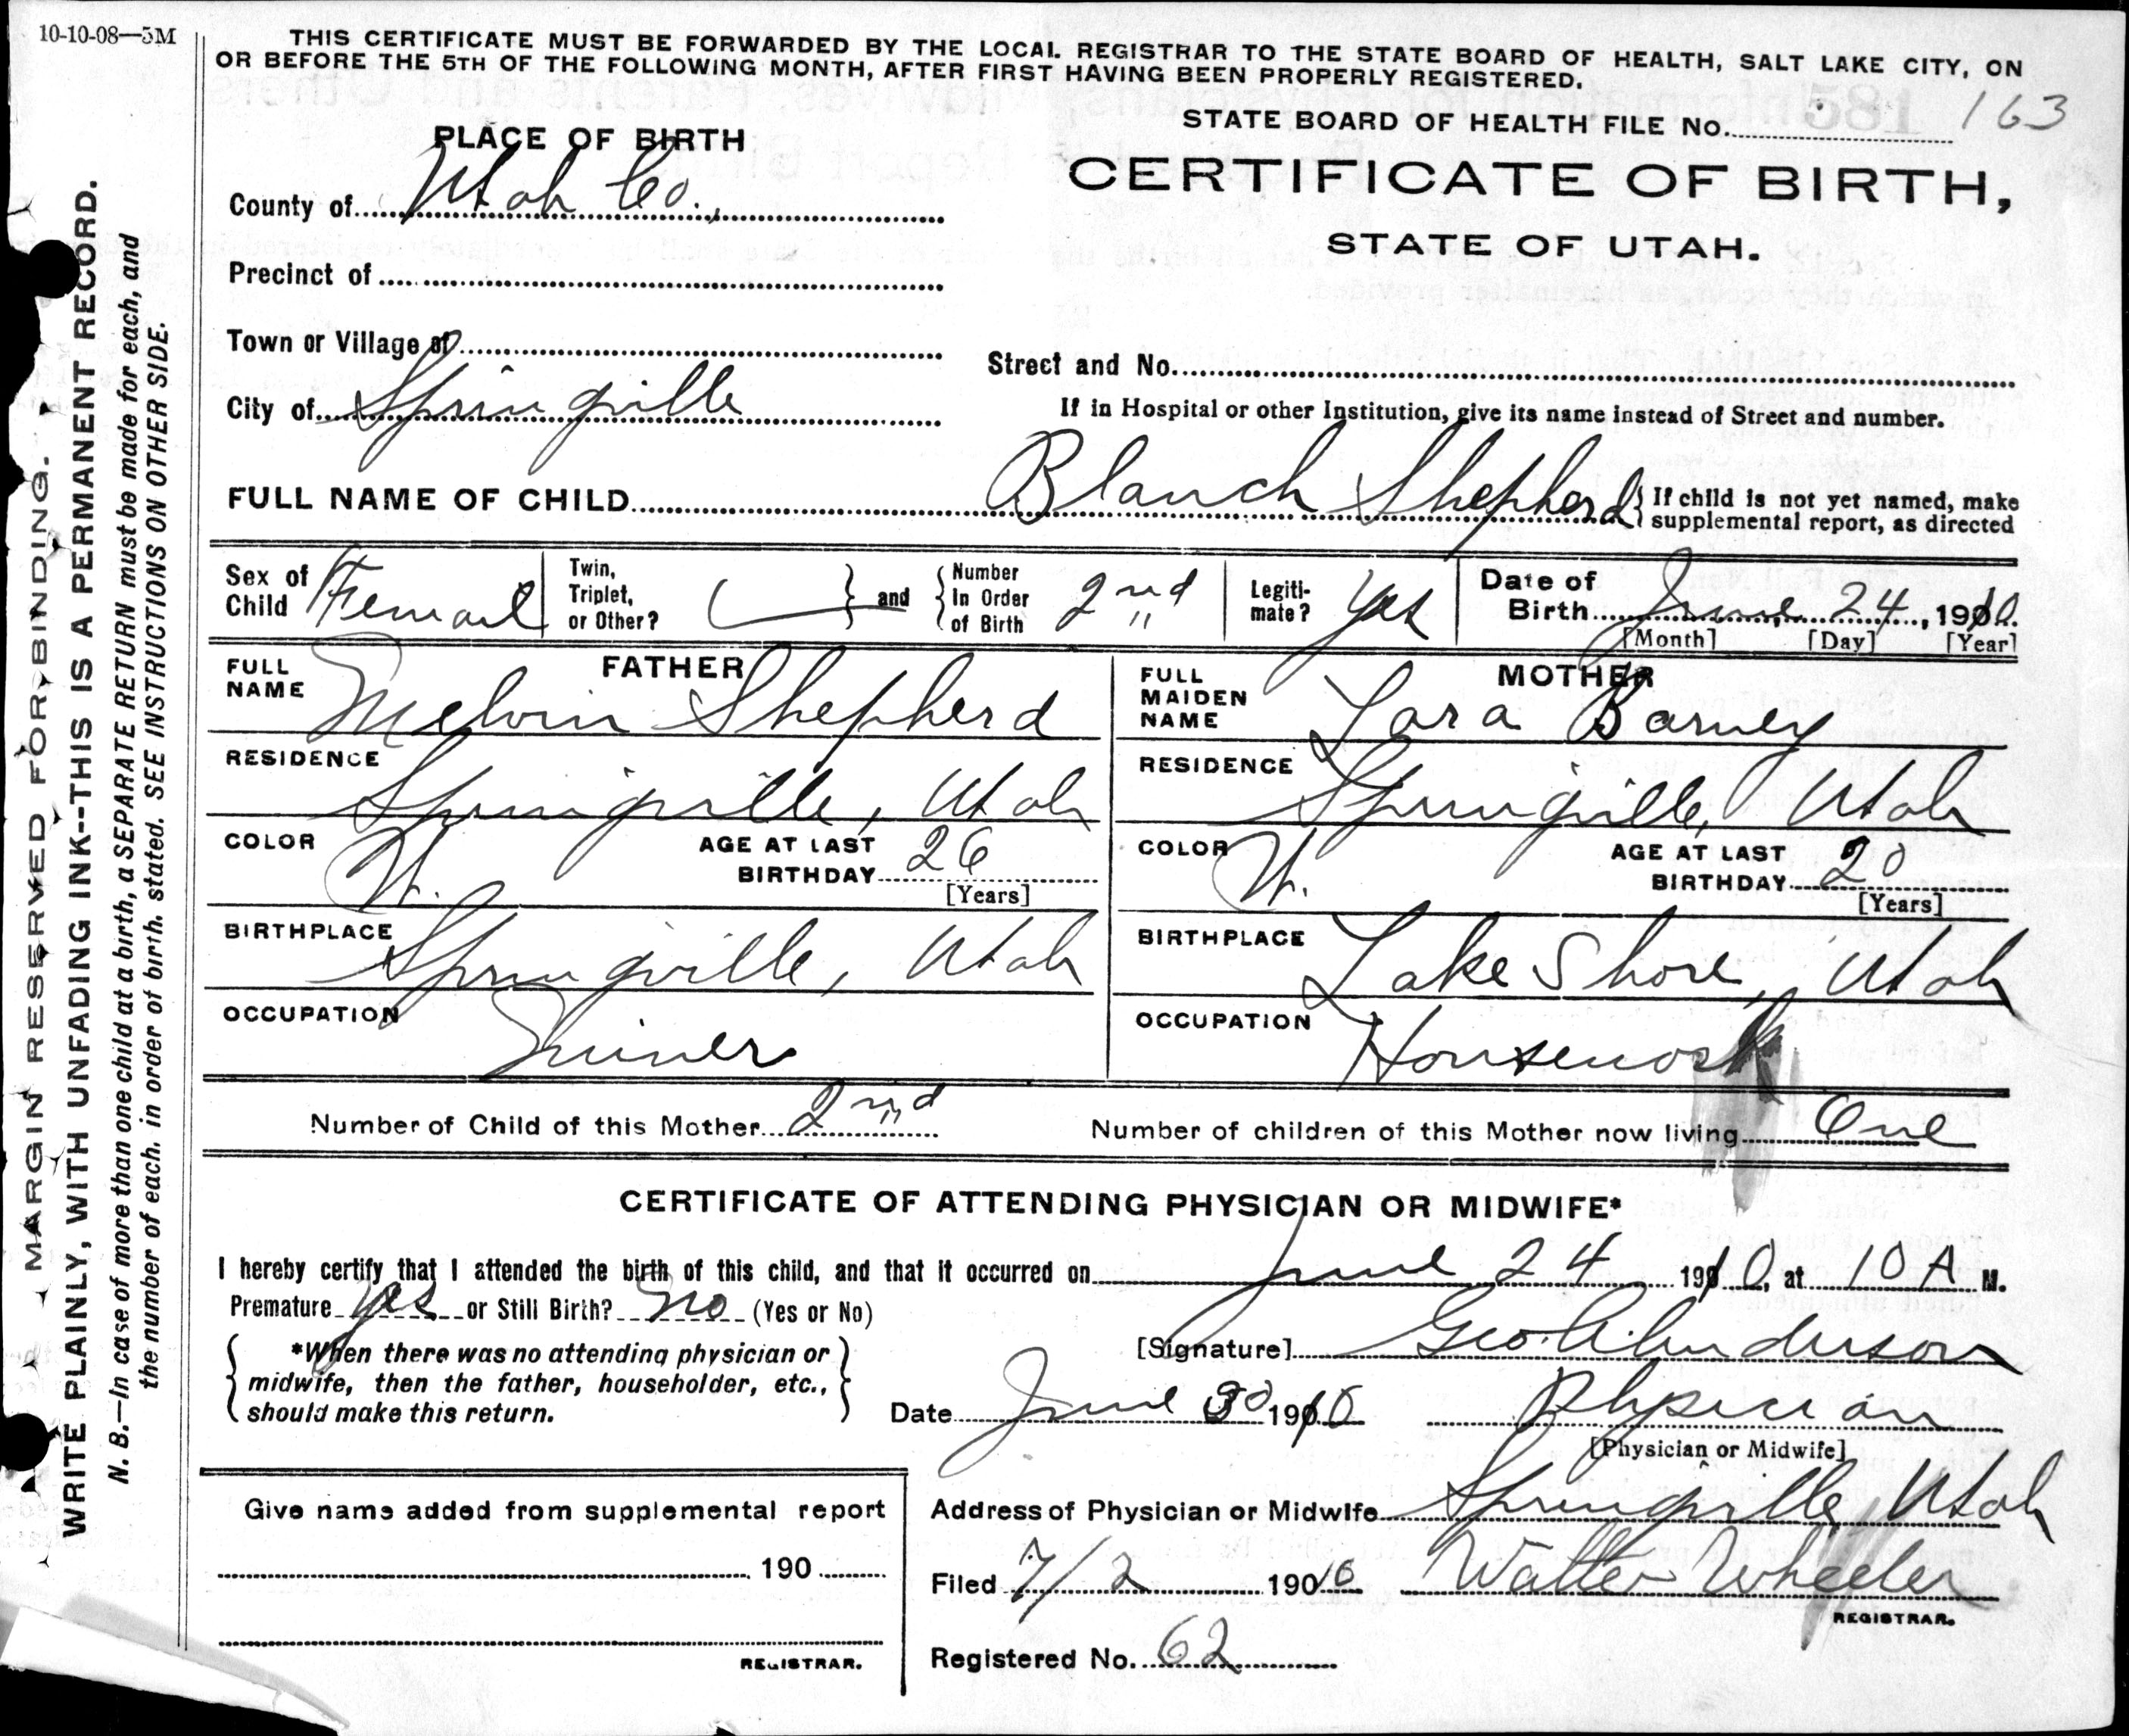 10-10-08—5M
THIS CERTIFICATE MUST BE FORWARDED BY THE LOCAL REGISTRAR TO THE STATE BOARD OF HEALTH, SALT LAKE CITY, ON
OR BEFORE THE 5TH OF THE FOLLOWING MONTH, AFTER FIRST HAVING BEEN PROPERLY REGISTERED.
STATE BOARD OF HEALTH FILE No. 163
185
PLACE OF BIRTH
CERTIFICATE OF BIRTH,
STATE OF UTAH.
County of Utah Co.,
Precinct of
Town or Village of
Street and No.
City of Springville
If in Hospital or other Institution, give its name instead of Street and number.
FULL NAME OF CHILD Blanch Shepherd { If child is not yet named, make
supplemental report, as directed
Sex of Child Femail
Twin, Triplet, or Other? } and { Number In Order of Birth 2nd
Legiti-mate? Yes
Date of Birth June 24, 1910.
[Month] [Day] [Year]
FATHER
FULL NAME Melvin Shepherd
RESIDENCE Springville, Utah
COLOR W. AGE AT LAST BIRTHDAY 26 [Years]
BIRTHPLACE Springville, Utah
OCCUPATION Miner
MOTHER
FULL MAIDEN NAME Lara Barney
RESIDENCE Springville, Utah
COLOR W. AGE AT LAST BIRTHDAY 20 [Years]
BIRTHPLACE Lake Shore, Utah
OCCUPATION Housework
Number of Child of this Mother 2nd Number of children of this Mother now living One
CERTIFICATE OF ATTENDING PHYSICIAN OR MIDWIFE*
I hereby certify that I attended the birth of this child, and that it occurred on June 24 1910, at 10 A M.
Premature yes or Still Birth? no (Yes or No)
*When there was no attending physician or
midwife, then the father, householder, etc.,
should make this return.
[Signature] Geo. A. Anderson
Date June 30 1910 Physician
[Physician or Midwife]
Address of Physician or Midwife Springville, Utah
Filed 7/2 1910 Walter Wheeler
REGISTRAR.
Registered No. 62
Give name added from supplemental report
190
REGISTRAR.
MARGIN RESERVED FOR BINDING.
WRITE PLAINLY, WITH UNFADING INK--THIS IS A PERMANENT RECORD.
N. B.—In case of more than one child at a birth, a SEPARATE RETURN must be made for each, and
the number of each, in order of birth, stated. SEE INSTRUCTIONS ON OTHER SIDE.